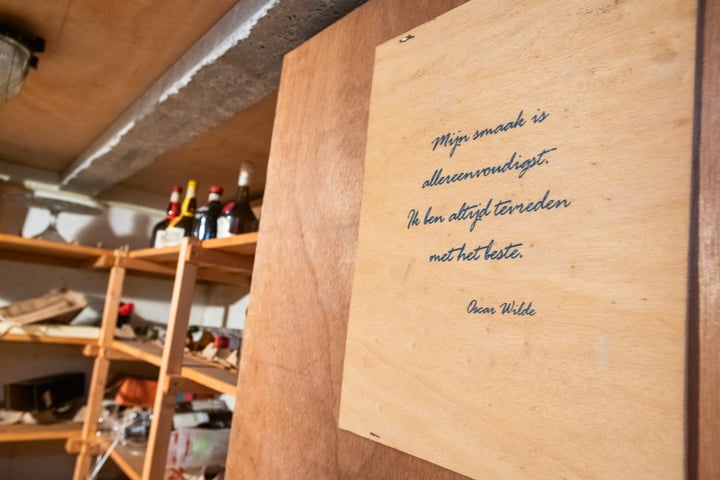 Mijn smaak is
allereenvoudigst.
Ik ben altijd tevreden
met het beste.
Oscar Wilde